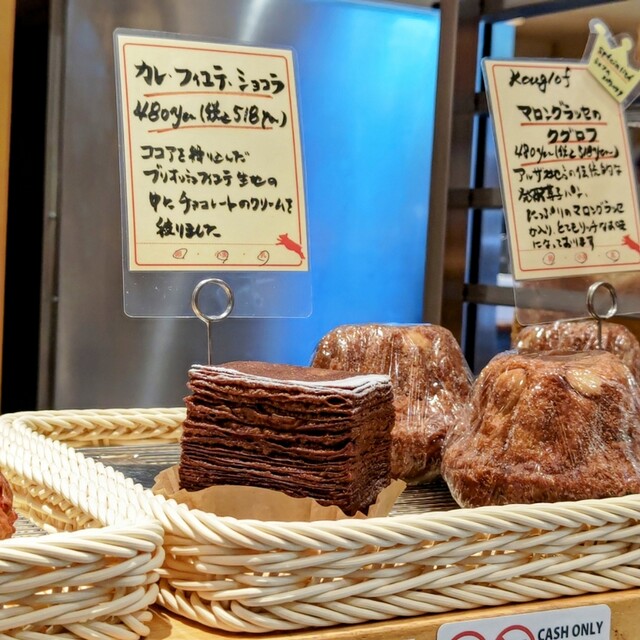 カレ・フィユテ、ショコラ
480yen(税込518yen)
ココアを練り込んだ
ブリオッシュフィユテ生地の
中にチョコレートのクリームを
絞りました
Kouglof
マロングラッセの
クグロフ
480yen(税込518yen)
アルザス地方の伝統的な
発酵菓子
たっぷりのマロングラッセ
が入り とてもリッチなお味
になっております
CASH ONLY